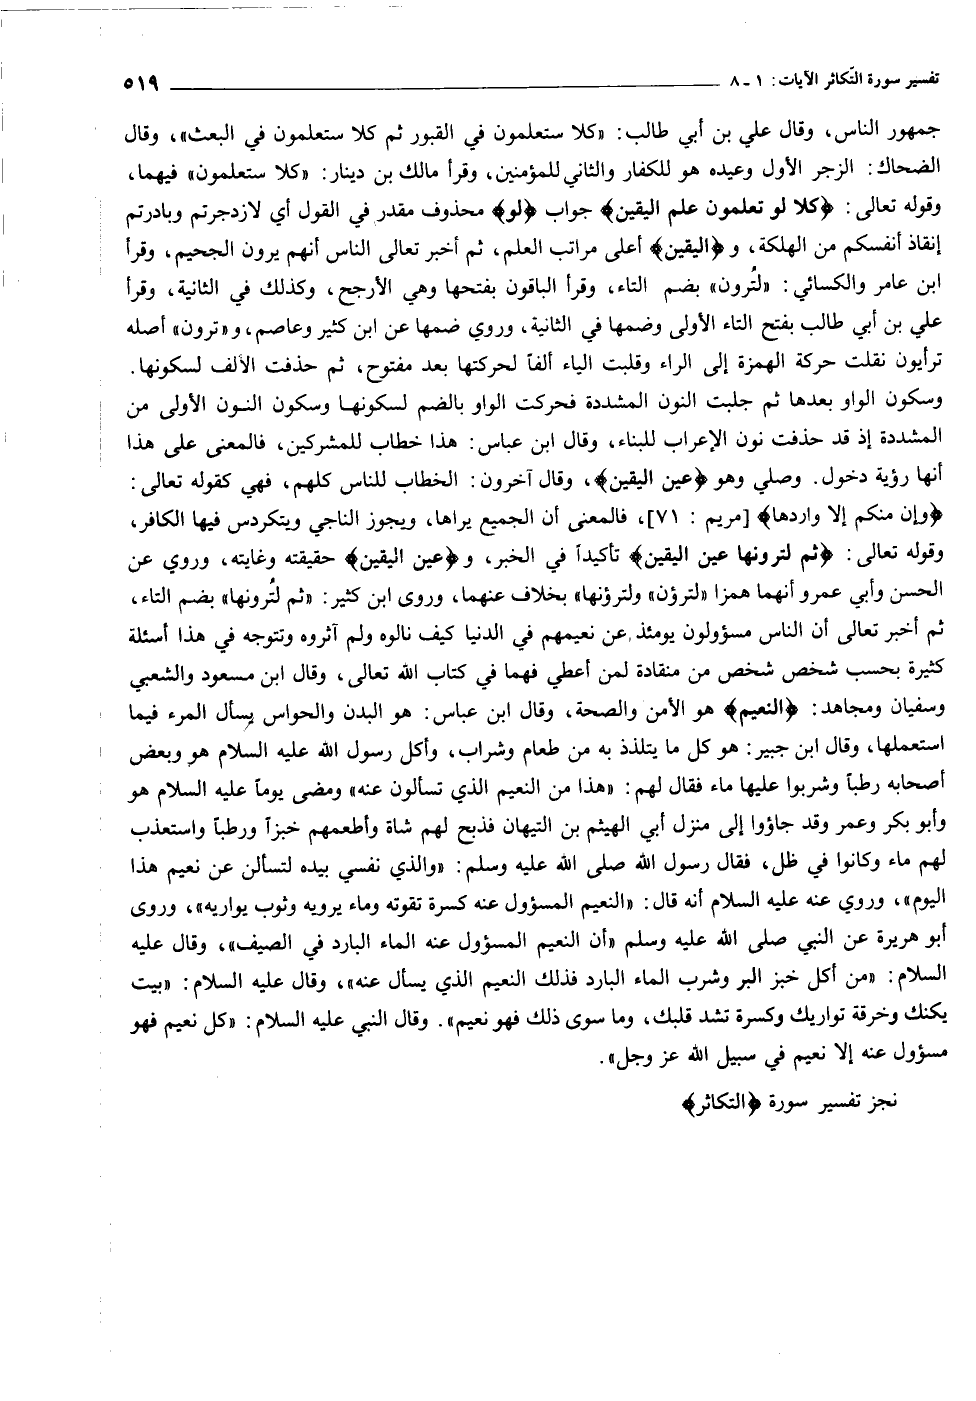 تفسير سورة التّكاثر الآيات: ١ ـ ٨ ٥١٩
جمهور الناس، وقال علي بن أبي طالب: «كلا ستعلمون في القبور ثم كلا ستعلمون في البعث»، وقال
الضحاك: الزجر الأول وعيده هو للكفار والثاني للمؤمنين، وقرأ مالك بن دينار: «كلا ستعلمون» فيهما،
وقوله تعالى: ﴿كلا لو تعلمون علم اليقين﴾ جواب ﴿لو﴾ محذوف مقدر في القول أي لازدجرتم وبادرتم
إنقاذ أنفسكم من الهلكة، و ﴿اليقين﴾ أعلى مراتب العلم، ثم أخبر تعالى الناس أنهم يرون الجحيم، وقرأ
ابن عامر والكسائي: «لتُرون» بضم التاء، وقرأ الباقون بفتحها وهي الأرجح، وكذلك في الثانية، وقرأ
علي بن أبي طالب بفتح التاء الأولى وضمها في الثانية، وروي ضمها عن ابن كثير وعاصم، و«ترون» أصله
ترأيون نقلت حركة الهمزة إلى الراء وقلبت الياء ألفاً لحركتها بعد مفتوح، ثم حذفت الألف لسكونها.
وسكون الواو بعدها ثم جلبت النون المشددة فحركت الواو بالضم لسكونها وسكون النون الأولى من
المشددة إذ قد حذفت نون الإعراب للبناء، وقال ابن عباس: هذا خطاب للمشركين، فالمعنى على هذا
أنها رؤية دخول. وصلي وهو ﴿عين اليقين﴾، وقال آخرون: الخطاب للناس كلهم، فهي كقوله تعالى:
﴿وإن منكم إلا واردها﴾ [مريم : ٧١]، فالمعنى أن الجميع يراها، ويجوز الناجي ويتكردس فيها الكافر،
وقوله تعالى: ﴿ثم لترونها عين اليقين﴾ تأكيداً في الخبر، و ﴿عين اليقين﴾ حقيقته وغايته، وروي عن
الحسن وأبي عمرو أنهما همزا «لترؤن» ولترؤنها» بخلاف عنهما، وروى ابن كثير: «ثم لتُرونها» بضم التاء،
ثم أخبر تعالى أن الناس مسؤولون يومئذ عن نعيمهم في الدنيا كيف نالوه ولم آثروه وتتوجه في هذا أسئلة
كثيرة بحسب شخص شخص من منقادة لمن أعطي فهما في كتاب الله تعالى، وقال ابن مسعود والشعبي
وسفيان ومجاهد: ﴿النعيم﴾ هو الأمن والصحة، وقال ابن عباس: هو البدن والحواس يسأل المرء فيما
استعملها، وقال ابن جبير: هو كل ما يتلذذ به من طعام وشراب، وأكل رسول الله عليه السلام هو وبعض
أصحابه رطباً وشربوا عليها ماء فقال لهم: «هذا من النعيم الذي تسألون عنه» ومضى يوماً عليه السلام هو
وأبو بكر وعمر وقد جاؤوا إلى منزل أبي الهيثم بن التيهان فذبح لهم شاة وأطعمهم خبزاً ورطباً واستعذب
لهم ماء وكانوا في ظل، فقال رسول الله صلى الله عليه وسلم: «والذي نفسي بيده لتسألن عن نعيم هذا
اليوم»، وروي عنه عليه السلام أنه قال: «النعيم المسؤول عنه كسرة تقوته وماء يرويه وثوب يواريه»، وروى
أبو هريرة عن النبي صلى الله عليه وسلم «أن النعيم المسؤول عنه الماء البارد في الصيف»، وقال عليه
السلام: «من أكل خبز البر وشرب الماء البارد فذلك النعيم الذي يسأل عنه»، وقال عليه السلام: «بيت
يكنك وخرقة تواريك وكسرة تشد قلبك، وما سوى ذلك فهو نعيم». وقال النبي عليه السلام: «كل نعيم فهو
مسؤول عنه إلا نعيم في سبيل الله عز وجل».
نجز تفسير سورة ﴿التكاثر﴾